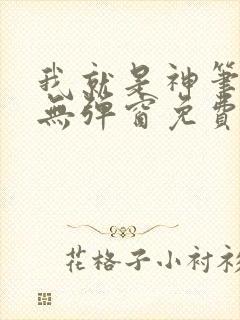 我就是神筆
無彈窗免費
花格子小衬衫